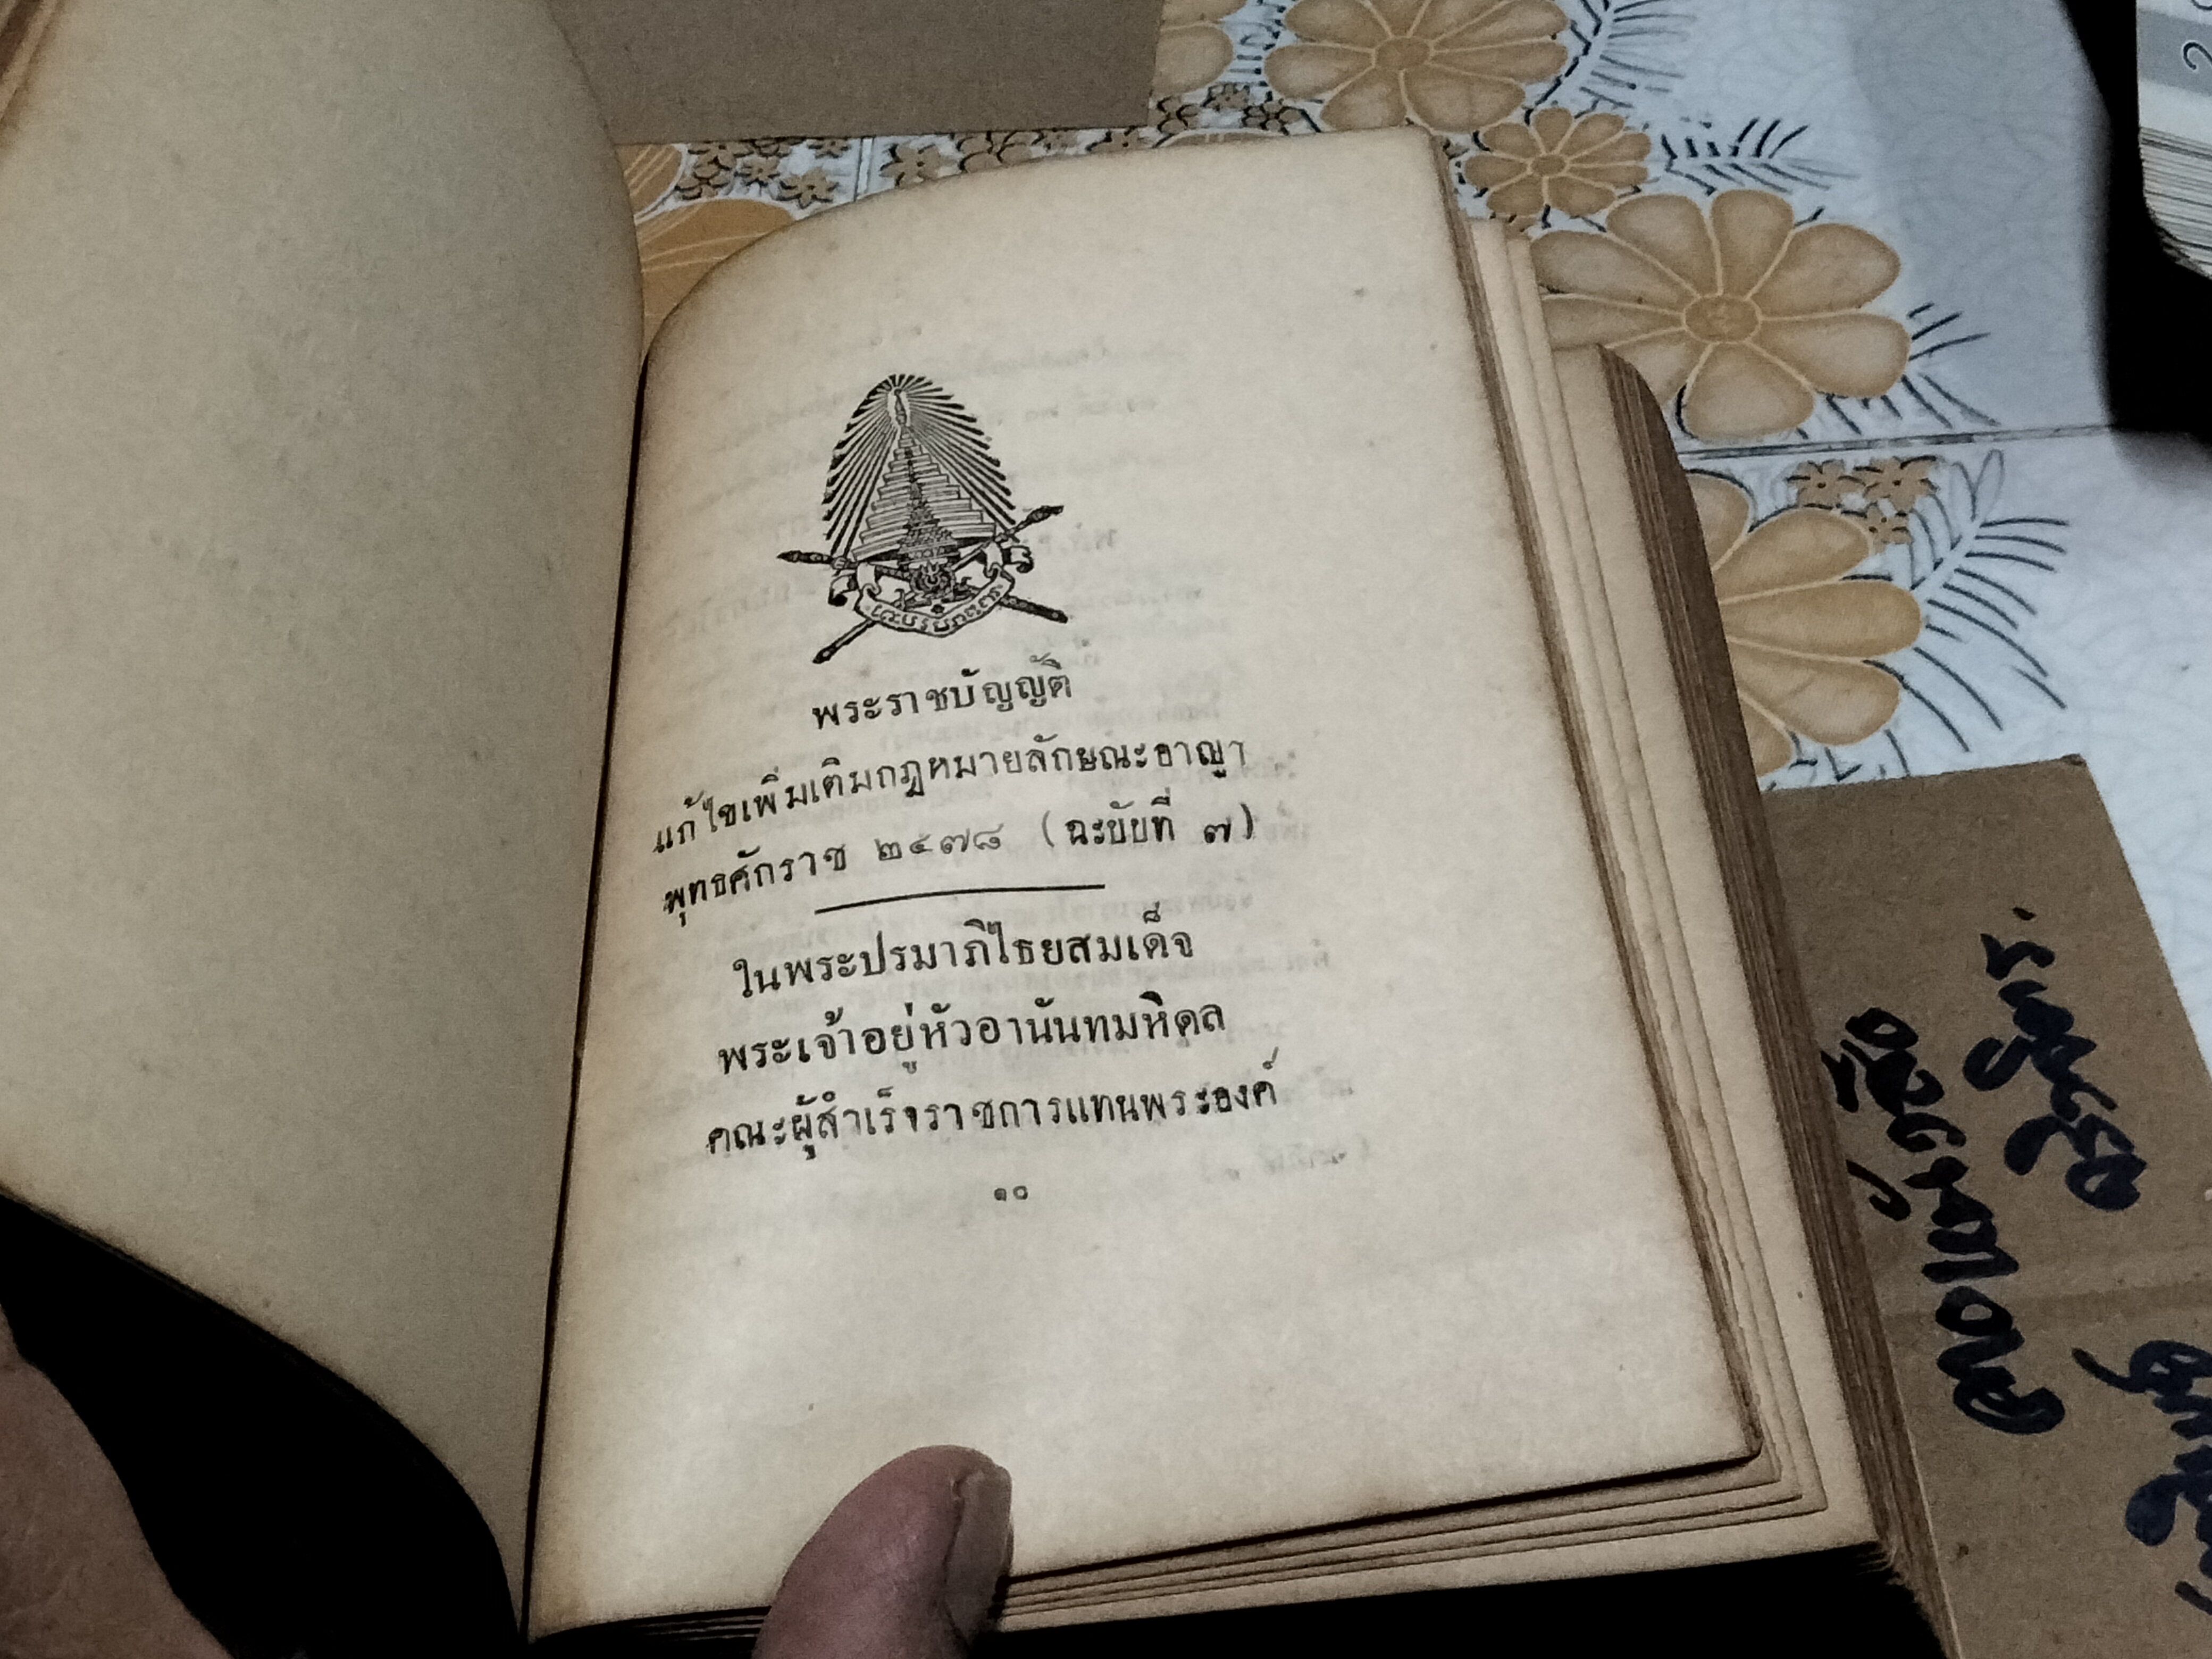 พระราชบัญญัติ
แก้ไขเพิ่มเติมกฎหมายลักษณะอาญา
พุทธศักราช ๒๔๗๘ (ฉะบับที่ ๗)
ในพระปรมาภิไธยสมเด็จ
พระเจ้าอยู่หัวอานันทมหิดล
คณะผู้สำเร็จราชการแทนพระองค์
๑๐